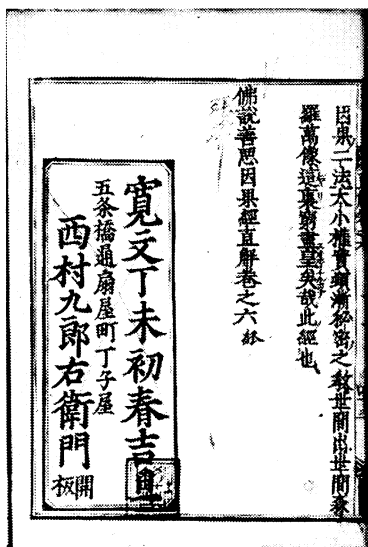 因果二法大小權實頓漸秘密之教世間出世間森
羅萬像這裏窮盡皇矣哉此經也
佛說善惡因果經直解卷之六 終
寛文丁未初春吉旦
五条橋通扇屋町丁子屋
西村九郎右衛門
開板